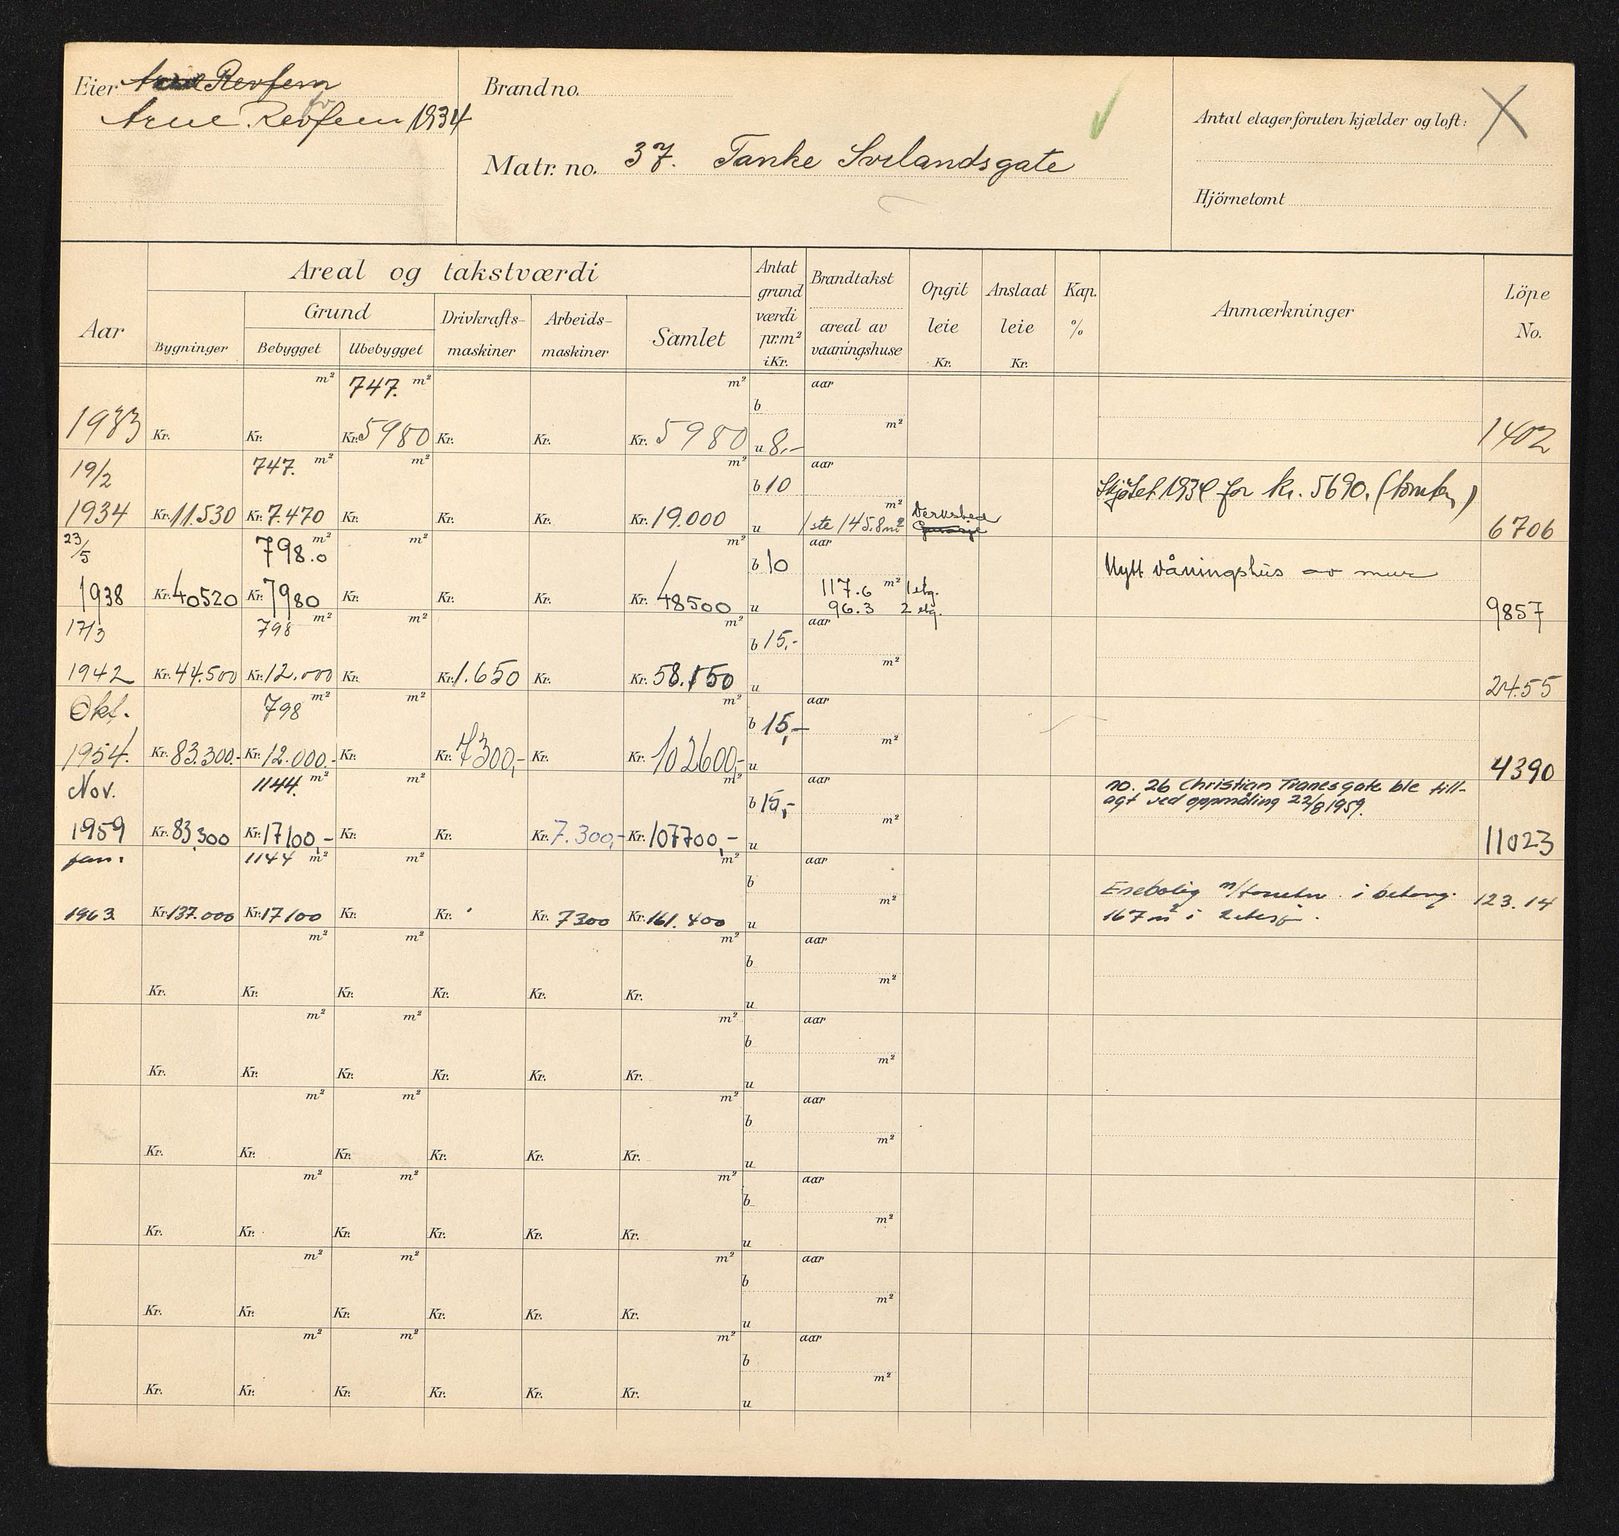 Eier Arne Revfem
Arne Revfem 1934
Brand no.
Matr. no. 37. Tanke Svilandsgate
Antal etager foruten kjælder og loft: X
Hjörnetomt
Aar
Areal og takstværdi
Grund
Bygninger Bebygget Ubebygget
Drivkrafts-
maskiner
Arbeids-
maskiner
Samlet
Antat
grund
værdi
pr.m²
i Kr.
Brandtakst
areal av
vaaningshuse
Opgit
leie
Kr.
Anslaat
leie
Kr.
Kap.
%
Anmærkninger
Löpe
No.
m² 747. m² m² aar
b
1933 Kr. Kr. Kr. 5980 Kr. Kr. Kr. 5980 u 8,- m² 1402
19/2 747. m² m² m² aar
b 10
Skjøtet 1934 for kr. 5690. (tomten)
1934 Kr. 11.530 Kr. 7.470 Kr. Kr. Kr. Kr. 19.000 u 1ste 145.8 m² Verksted 6706
Garasje
23/5 798.0 m² m² m² aar
b 10
Nytt våningshus av mur
1938 Kr. 40520 Kr. 7980 Kr. Kr. Kr. Kr. 48500 u 117.6 m² 1 etg. 9857
96.3 2 etg.
17/3 798 m² m² m² aar
b 15,-
1942 Kr. 44.500 Kr. 12.000 Kr. Kr. 1.650 Kr. Kr. 58.150 u m² 2455
Okt. 798 m² m² m² aar
b 15,-
1954. Kr. 83.300.- Kr. 12.000.- Kr. Kr. 7300,- Kr. Kr. 102600,- u m² 4390
Nov. 1144. m² m² m² aar
b 15,-
no. 26 Christian Tranesgate ble till-
agt ved oppmåling 22/8 1959.
1959 Kr. 83.300 Kr. 17100,- Kr. Kr. Kr. 7.300,- Kr. 107700,- u m² 11023
jan. 1144 m² m² m² aar
b
Enebolig i betong.
167 m² i
1963 Kr. 137.000 Kr. 17100 Kr. Kr. Kr. 7300 Kr. 161.400 u m² 123.14
m² m² m² aar
b
Kr. Kr. Kr. Kr. Kr. Kr. u m²
m² m² m² aar
b
Kr. Kr. Kr. Kr. Kr. Kr. u m²
m² m² m² aar
b
Kr. Kr. Kr. Kr. Kr. Kr. u m²
m² m² m² aar
b
Kr. Kr. Kr. Kr. Kr. Kr. u m²
m² m² m² aar
b
Kr. Kr. Kr. Kr. Kr. Kr. u m²
m² m² m² aar
b
Kr. Kr. Kr. Kr. Kr. Kr. u m²